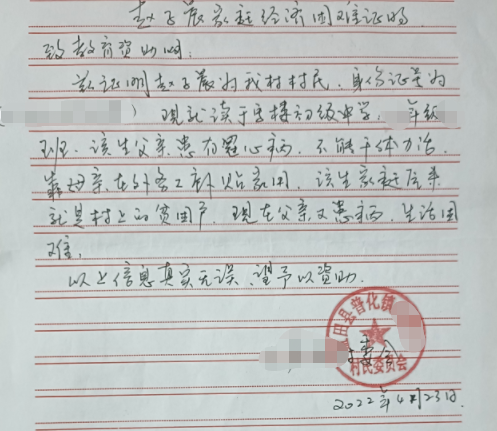 赵子晨家庭经济困难证明
致教育资助网:
兹证明赵子晨为我村村民,身份证号为
) 现就读于李楼初级中学, 年级
班. 该生父亲患有冠心病,不能干体力活,
靠母亲在外务工补贴家用. 该生家庭原来
就是村上的贫困户,现在父亲又患病,生活困
难,
以上信息真实无误,望予以资助.
田县普化镇
村委会
村民委员会
2022年4月23日.